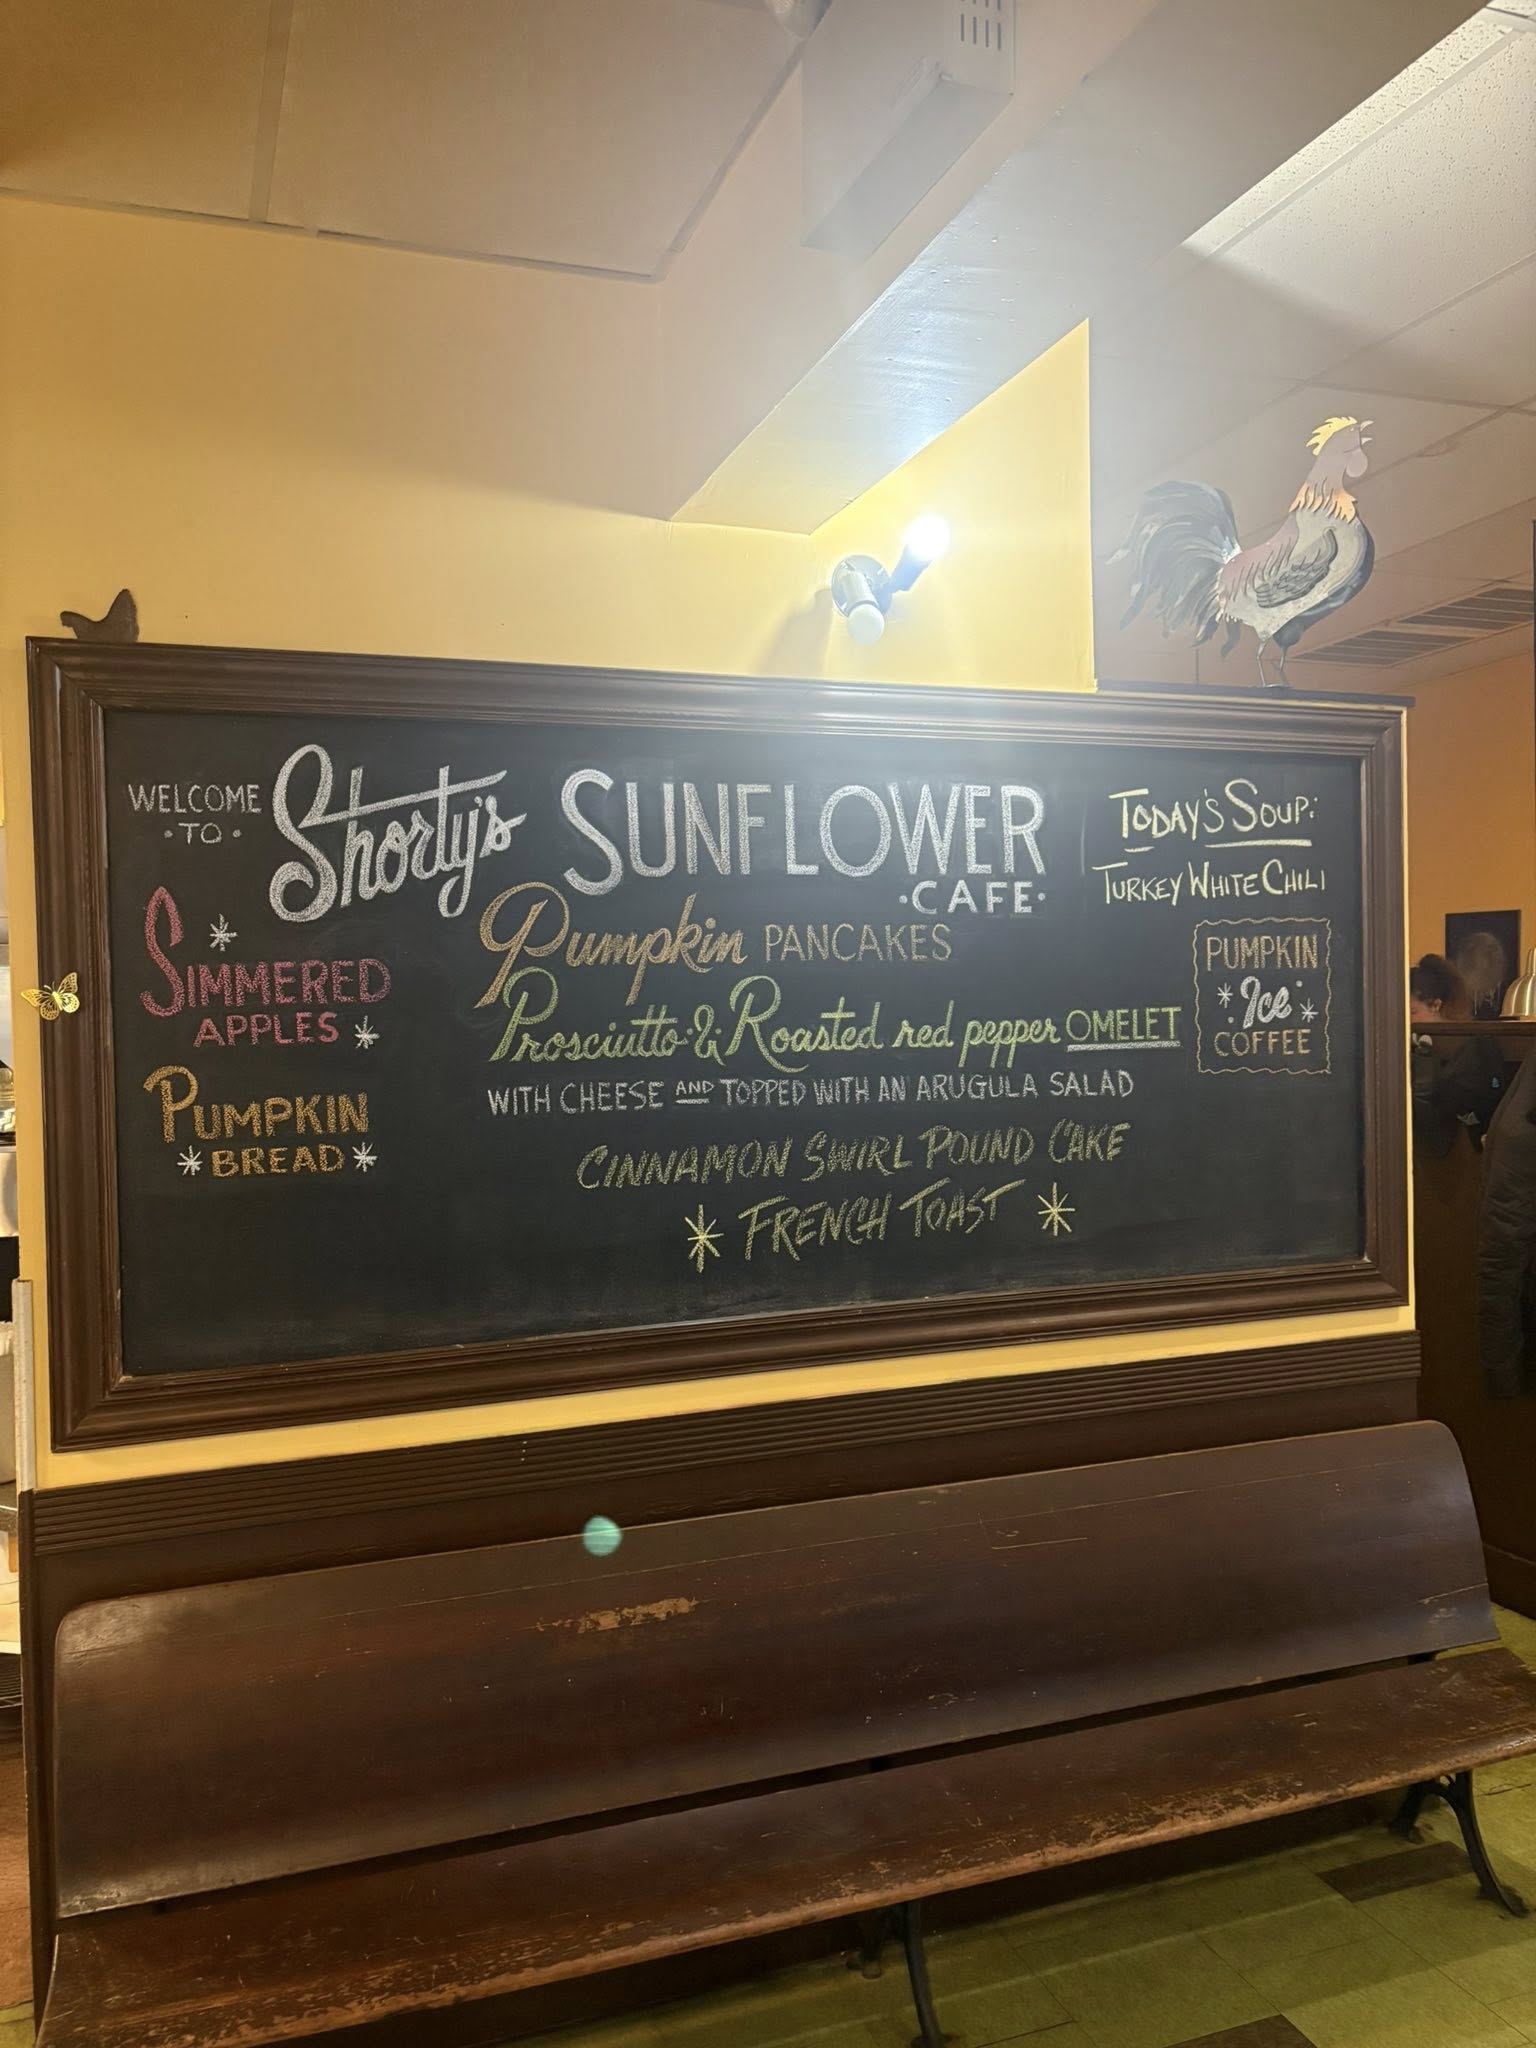 WELCOME
·TO·
Shorty's SUNFLOWER
·CAFE·
SIMMERED
APPLES
PUMPKIN
BREAD
Pumpkin PANCAKES
Prosciutto & Roasted red pepper OMELET
WITH CHEESE AND TOPPED WITH AN ARUGULA SALAD
CINNAMON SWIRL POUND CAKE
FRENCH TOAST
TODAY'S SOUP:
TURKEY WHITE CHILI
PUMPKIN
Ice
COFFEE